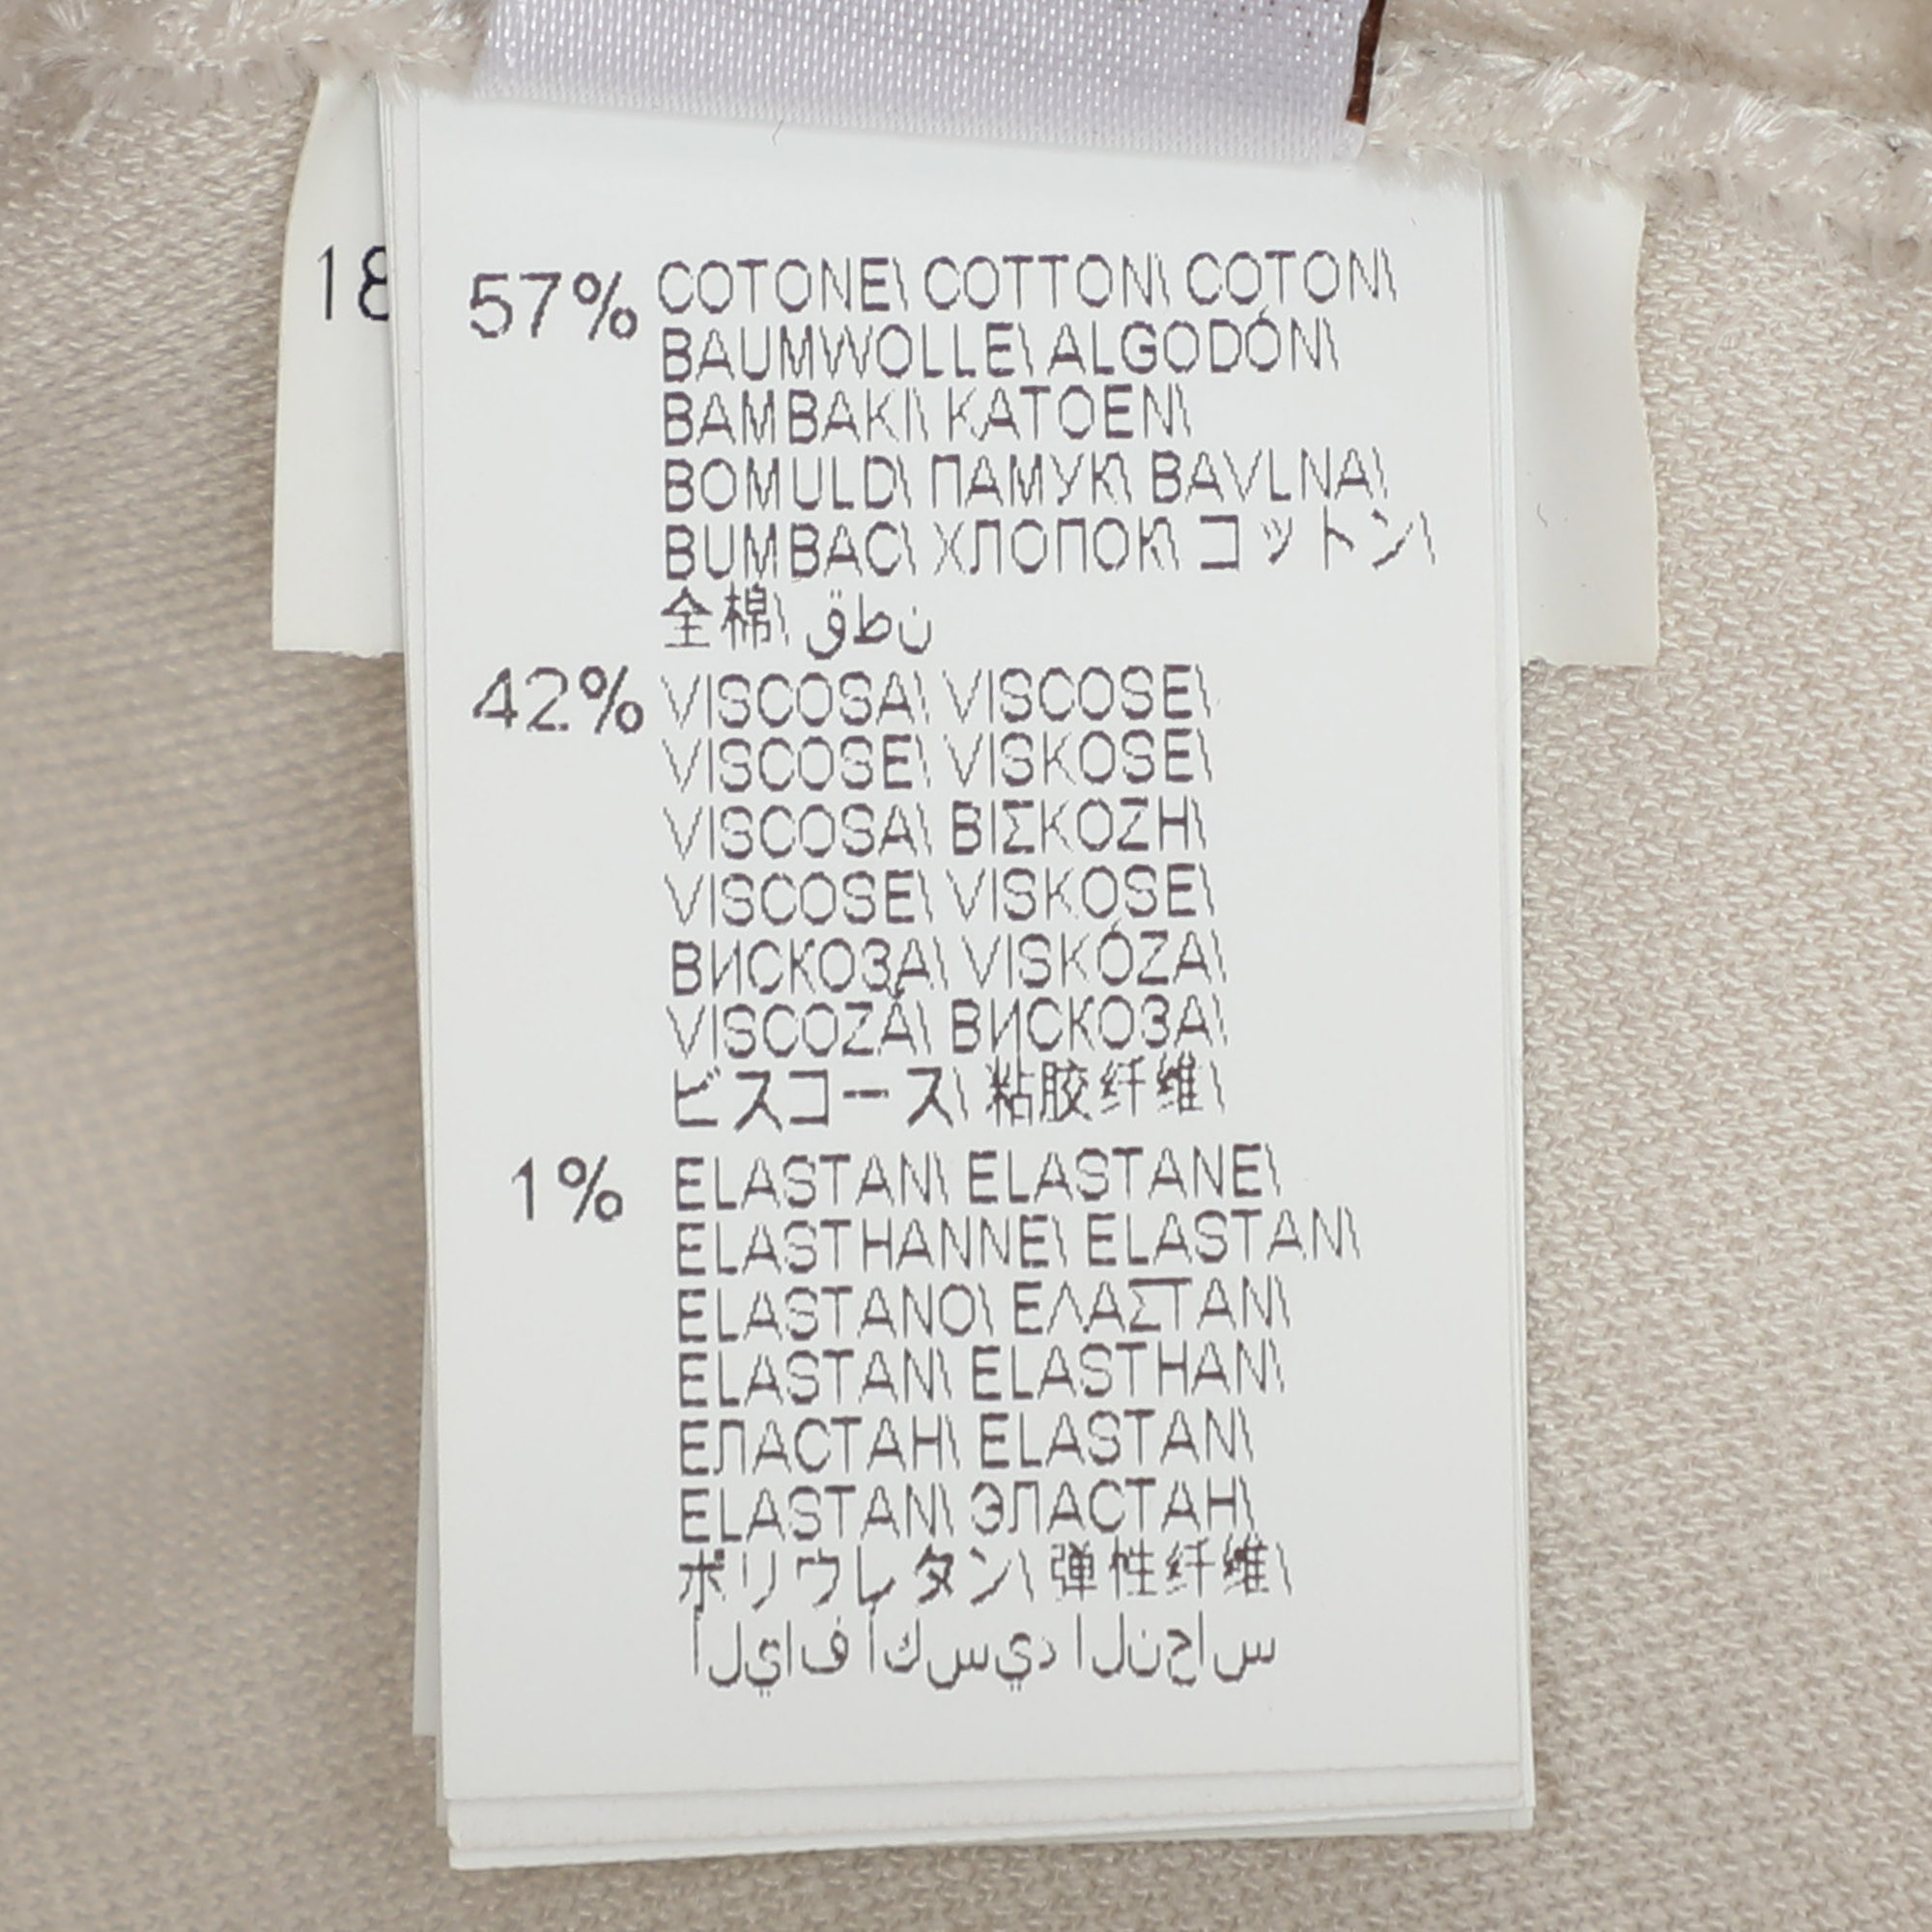 18
57% COTONE\ COTTON\ COTON\
BAUMWOLLE\ ALGODÓN\
BAMBAKI\ KATOEN\
BOMULD\ ПАМУК\ BAVLNA\
BUMBAC\ ХЛОПОК\ コットン\
全棉\ قطن
42% VISCOSA\ VISCOSE\
VISCOSE\ VISKOSE\
VISCOSA\ ΒΙΣΚΟΖΗ\
VISCOSE\ VISKOSE\
ВИСКОЗА\ VISKÓZA\
VISCOZĂ\ ВИСКОЗА\
ビスコース\ 粘胶纤维\
1% ELASTAN\ ELASTANE\
ELASTHANNE\ ELASTAN\
ELASTANO\ ΕΛΑΣΤΑΝ\
ELASTAN\ ELASTHAN\
ЕЛАСТАН\ ELASTAN\
ELASTAN\ ЭЛАСТАН\
ポリウレタン\ 弹性纤维\
ا ل ي ا ف ا ك س ي د ا ل ن ح ا س